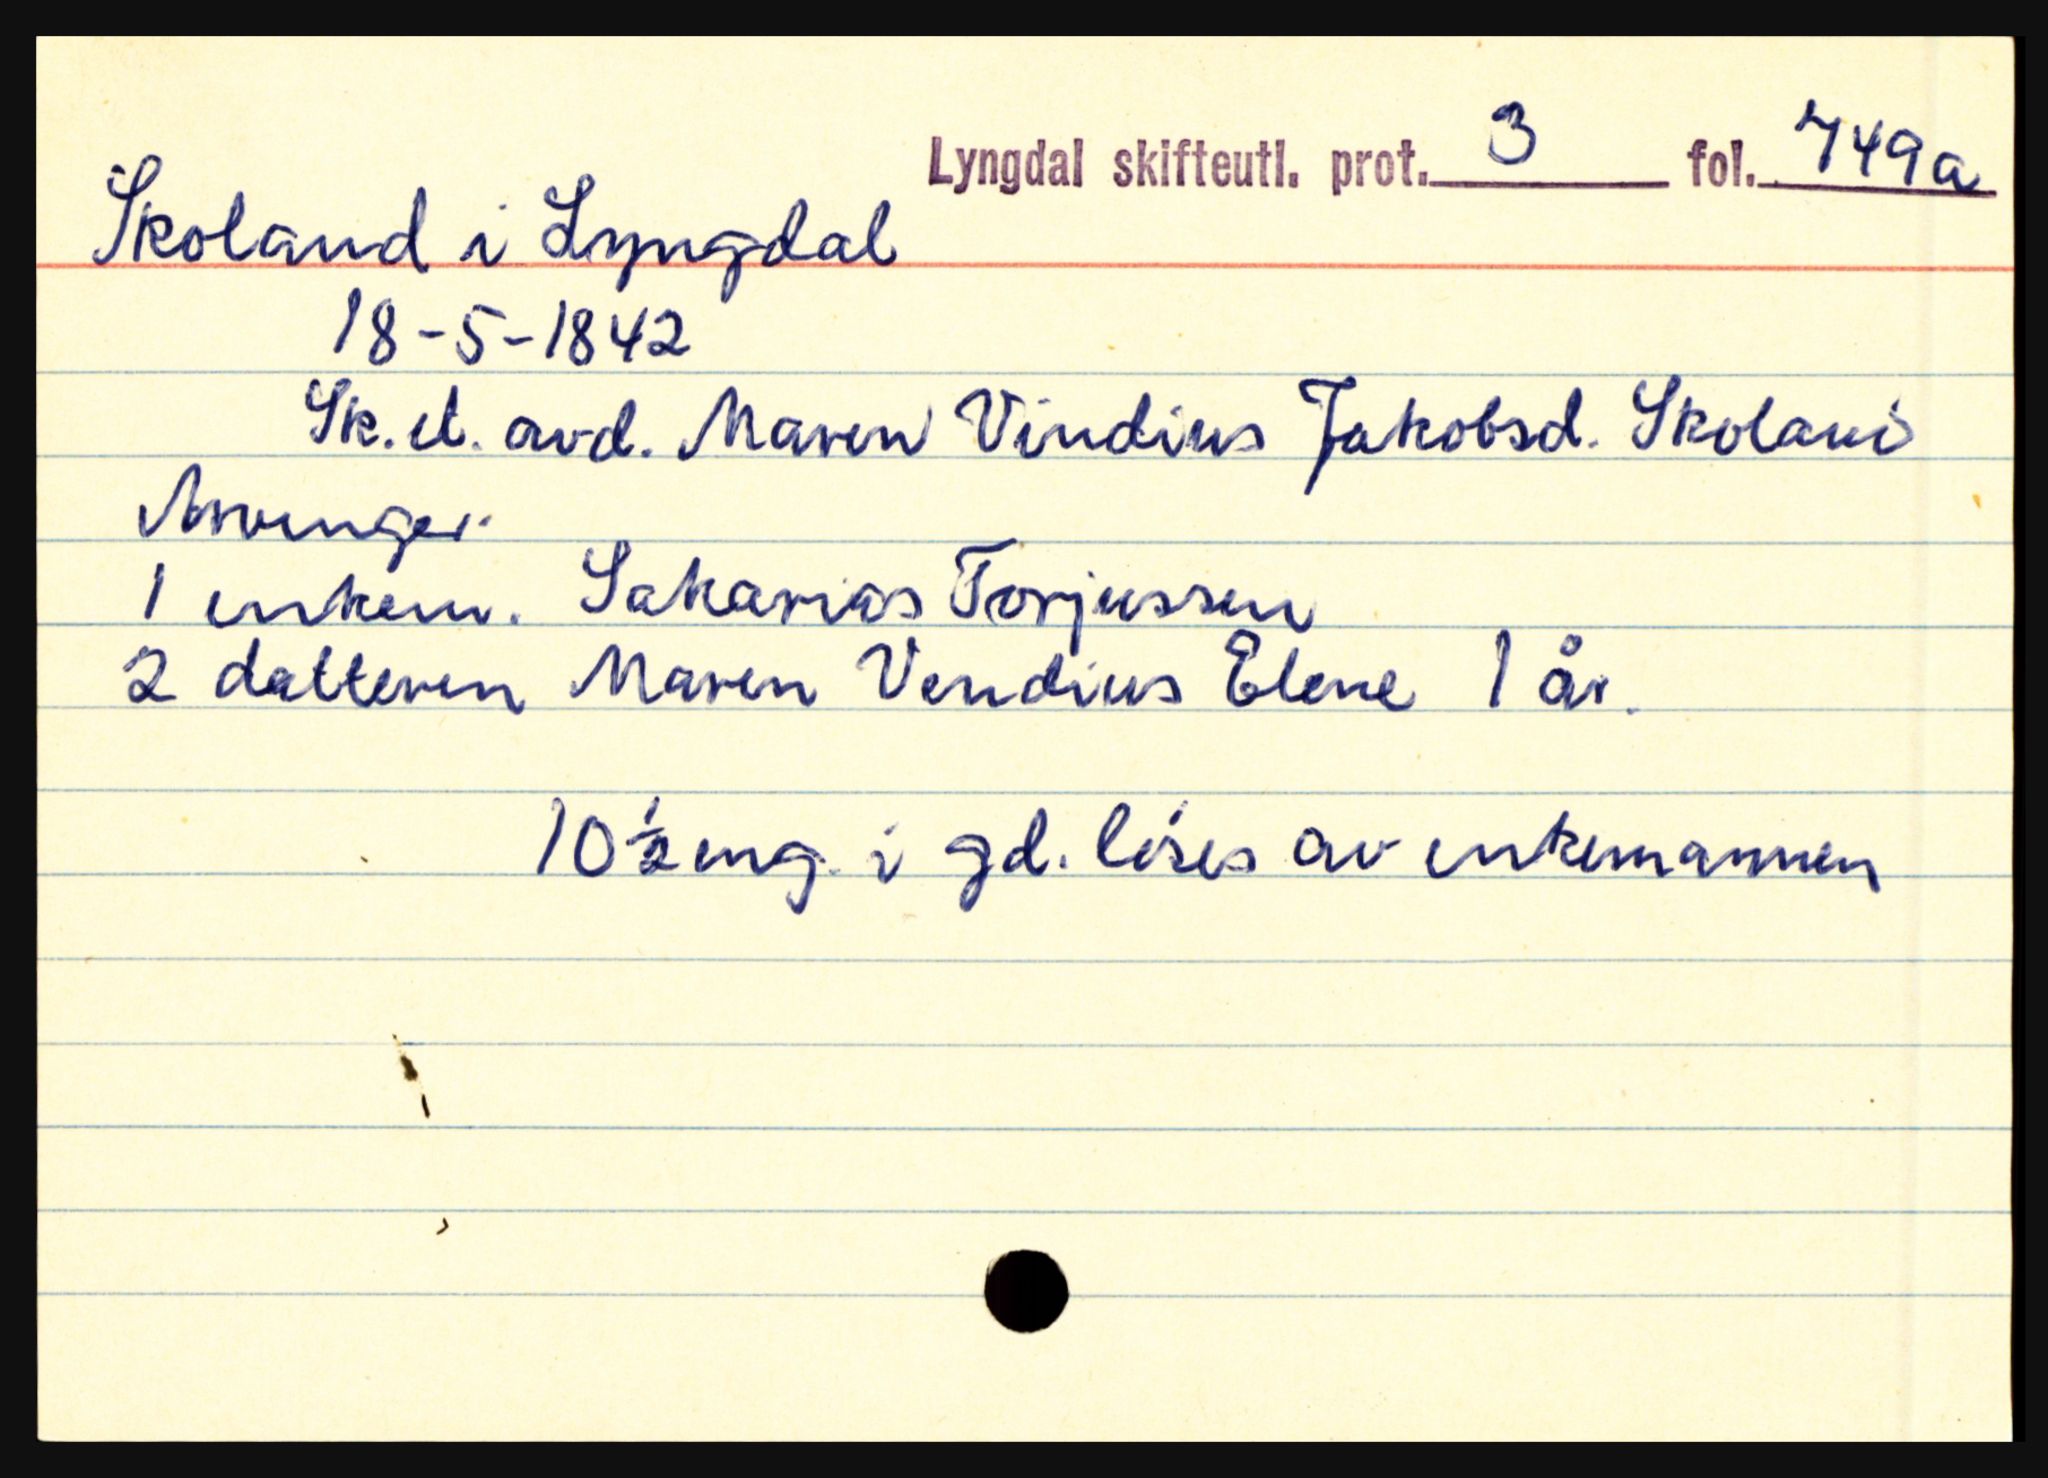 Lyngdal skifteutl. prot. 3 fol. 749a
Skoland i Lyngdal
18-5-1842
Sk. et. avd. Maren Vindius Jakobsd. Skoland
Arvinger.
1 enkem. Sakarias Torjussen
2 datteren Maren Vendius Elene 1 år.
10 1/2 eng. i gd. löses av enkemannen